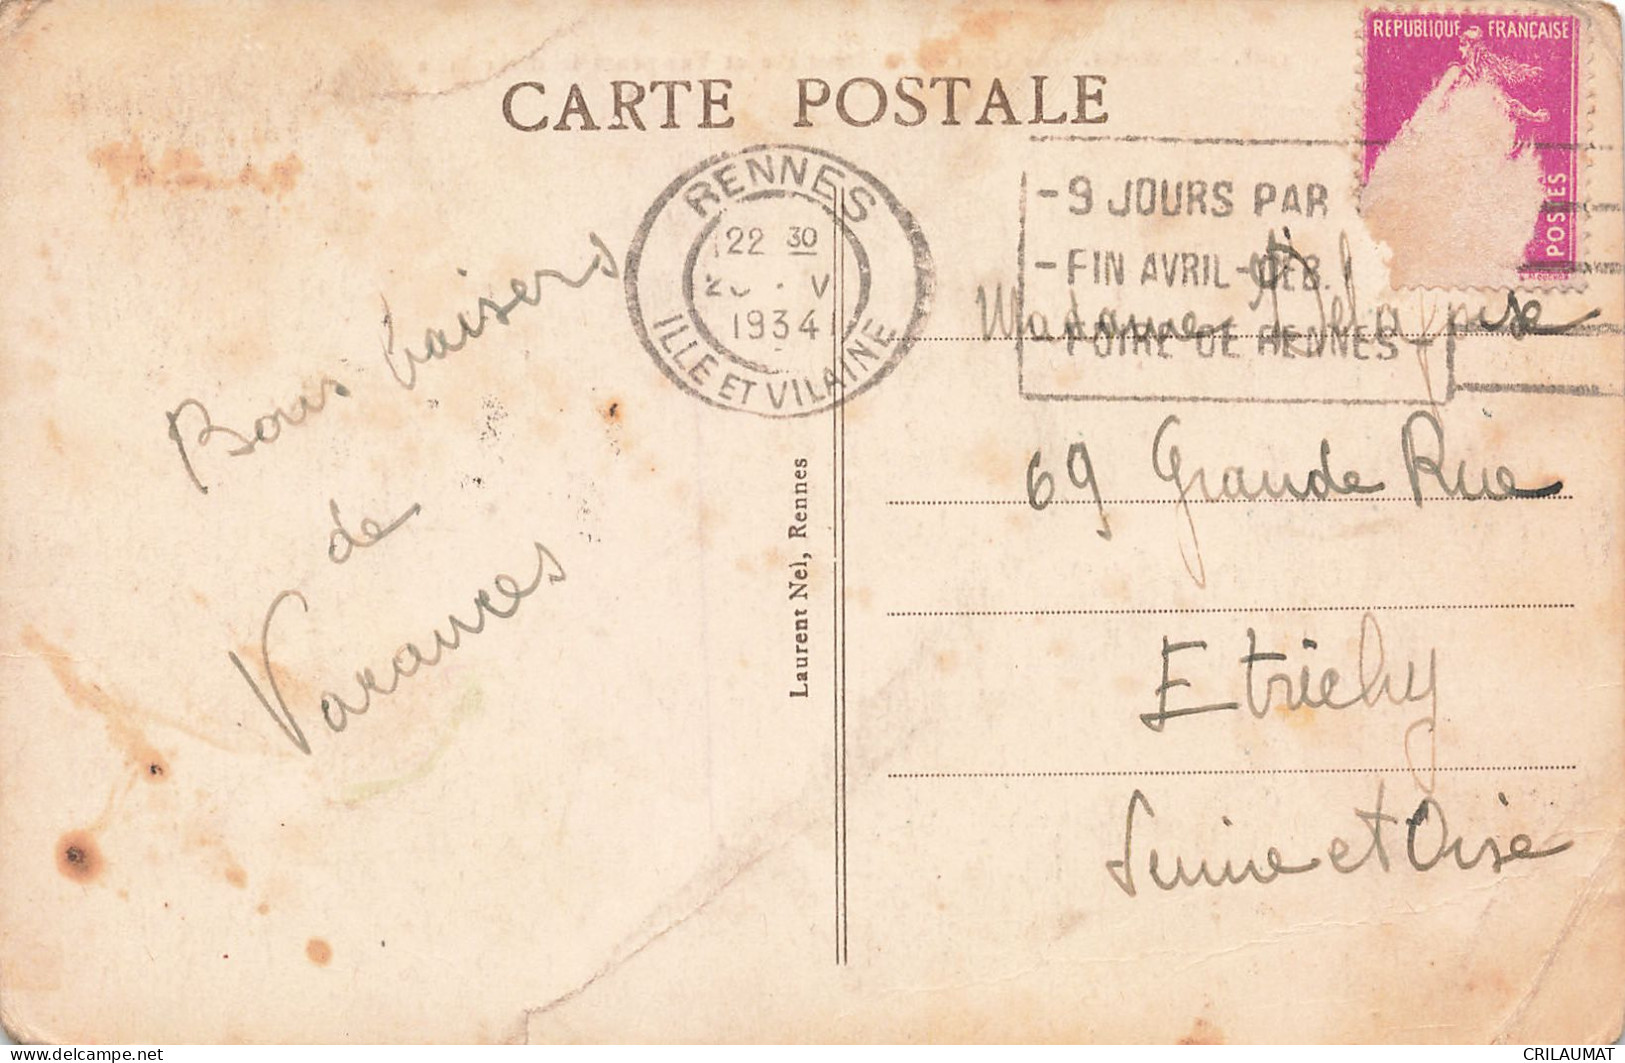 CARTE POSTALE
REPUBLIQUE FRANÇAISE
POSTES
RENNES
22 30
1934
ILLE ET VILAINE
- 9 JOURS PAR
- FIN AVRIL - DEB.
- FOIRE DE RENNES -
Bons baisers
de
Varannes
Laurent Nel, Rennes
Madame
69 Grande Rue
Etrichy
Seine et Oise
CRILAUMAT